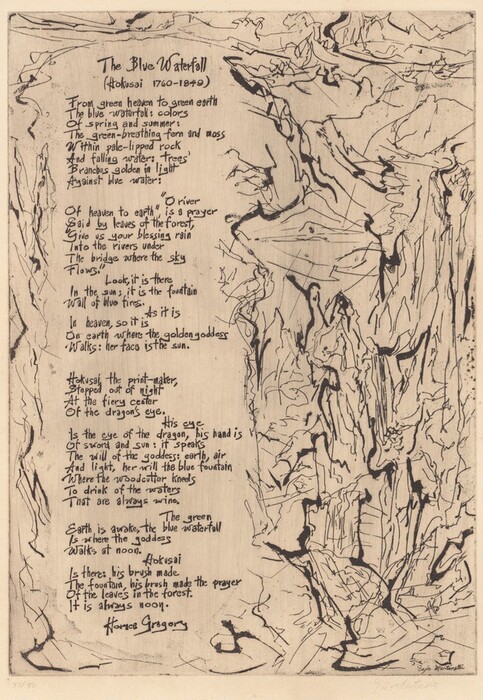 The Blue Waterfall
(Hokusai 1760-1849)
From green heaven to green earth
The blue waterfall: colors
Of spring and summer:
The green-breathing fern and moss
Within pale-lipped rock
And falling water: trees'
Branches golden in light
Against blue water:
"O river
Of heaven to earth" is a prayer
Said by leaves of the forest,
"Give us your blessing rain
Into the rivers under
The bridge where the sky
Flows."
Look, it is there
In the sun; it is the fountain
Wall of blue fires.
As it is
In heaven, so it is
On earth where the golden goddess
Walks: her face is the sun.
Hokusai, the print-maker,
Stepped out of night
At the fiery center
Of the dragon's eye.
His eye
Is the eye of the dragon, his hand is
Of sword and sun: it speaks
The will of the goddess: earth, air
And light, her will the blue fountain
Where the woodcutter kneels
To drink of the waters
That are always wine.
The green
Earth is awake, the blue waterfall
Is where the goddess
Walks at noon.
Hokusai
Is there: his brush made
The fountain, his brush made the prayer
Of the leaves in the forest.
It is always noon.
Horace Gregory